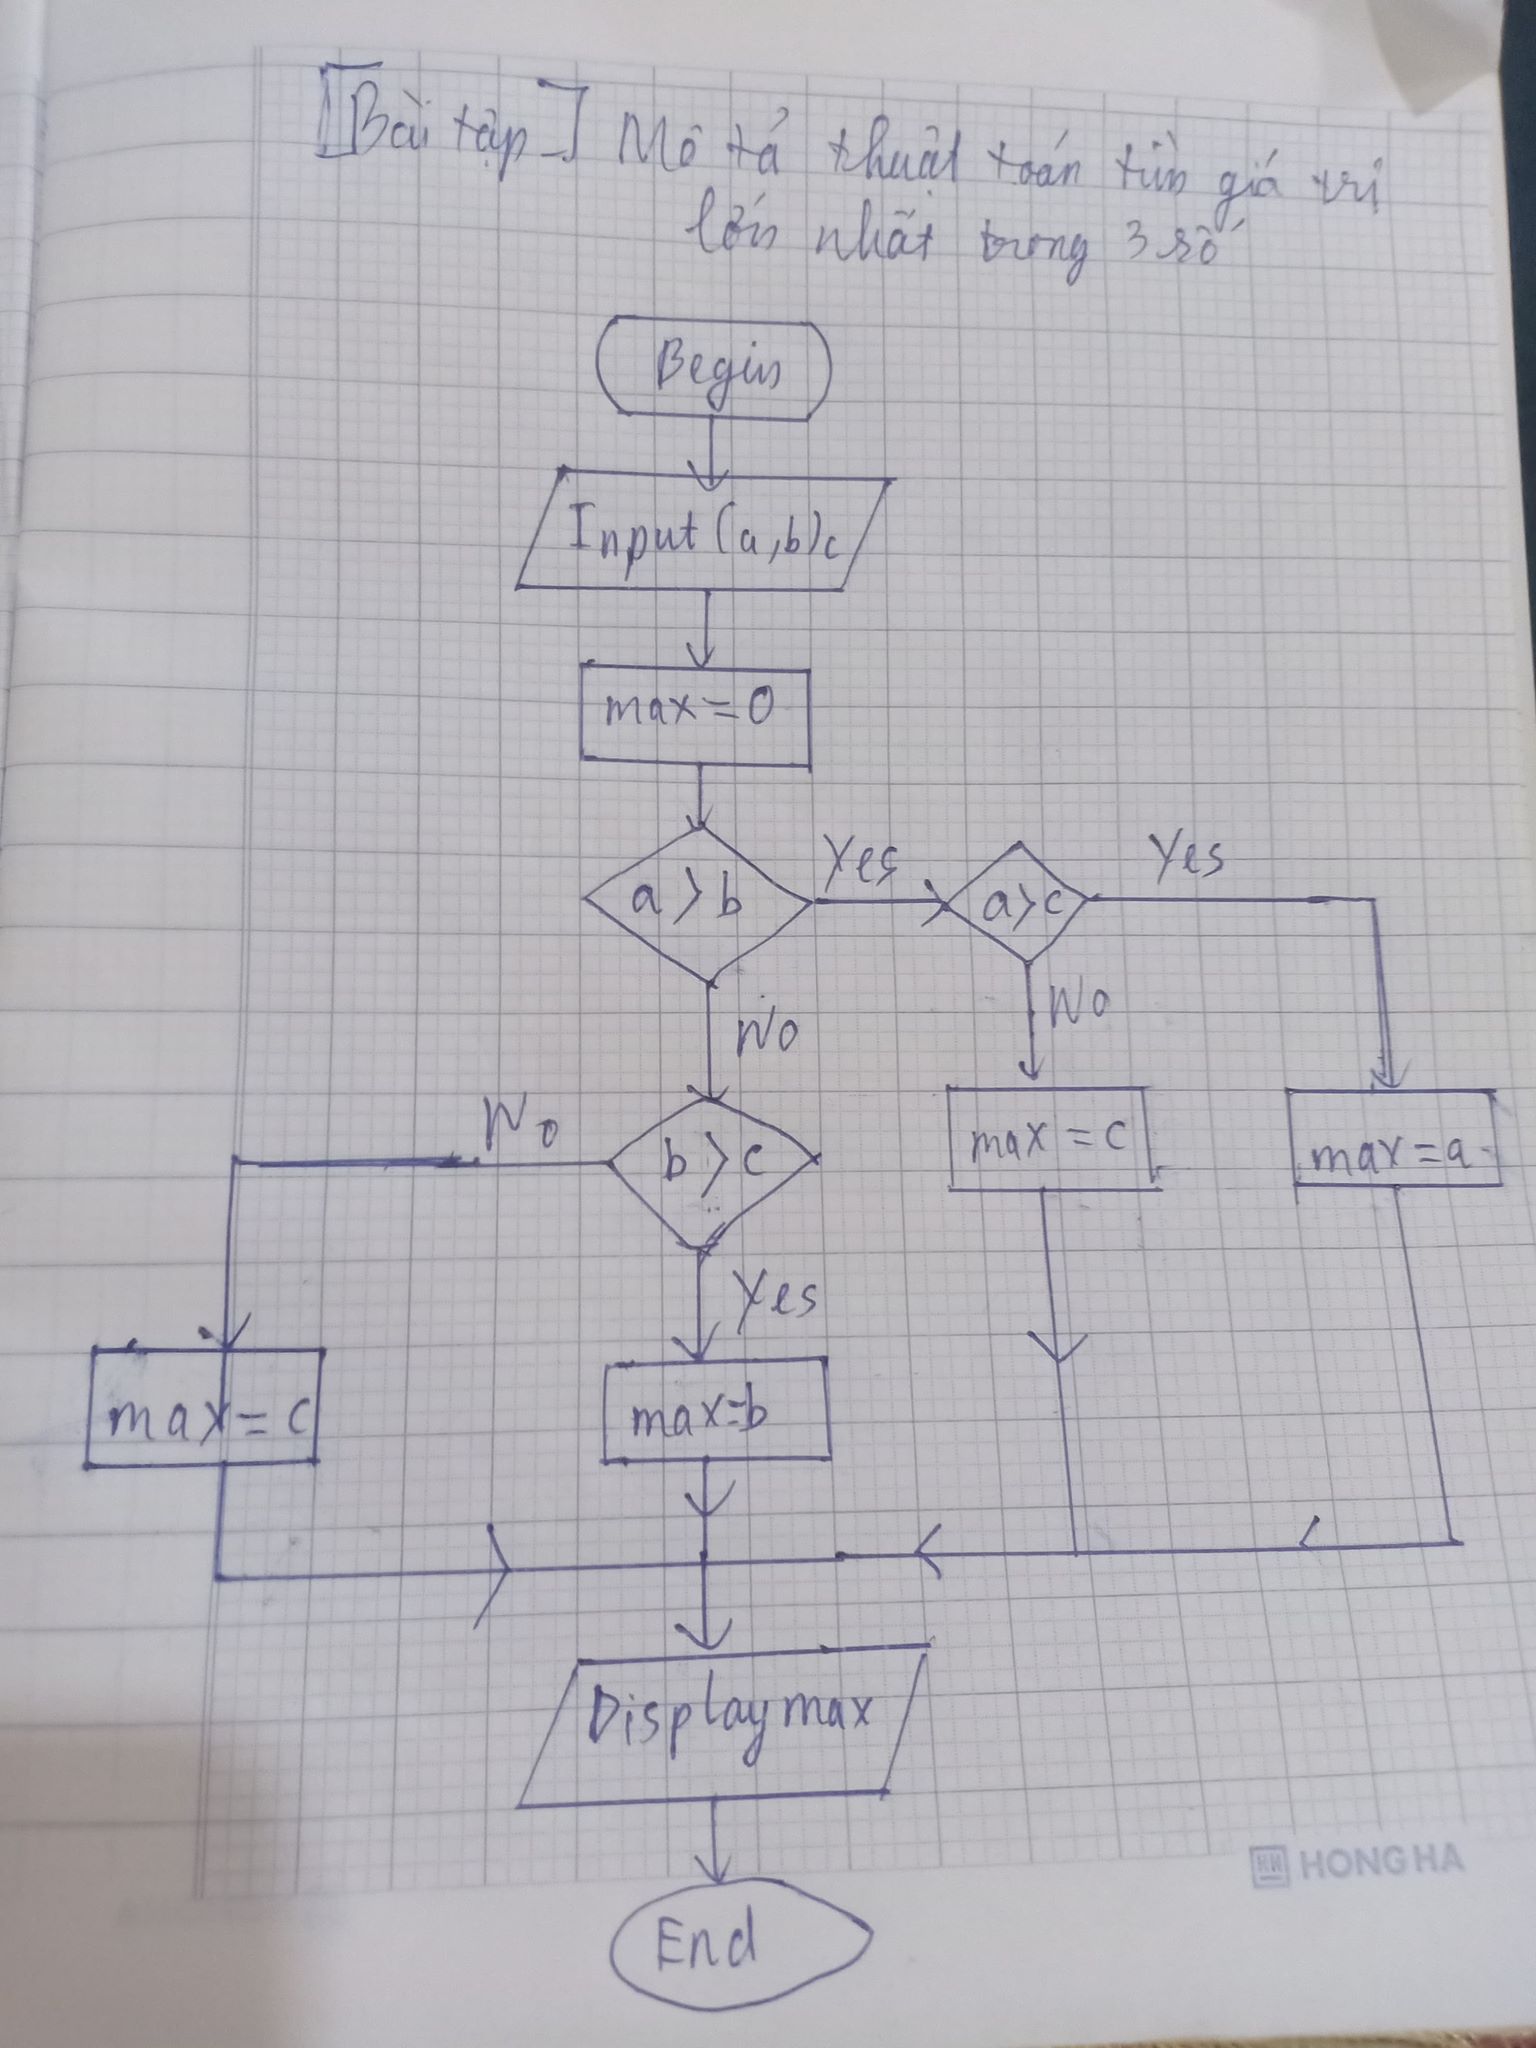 [Bài tập] Mô tả thuật toán tìm giá trị
lớn nhất trong 3 số
Begin
Input (a,b)c
max = 0
a > b
Yes
a>c
Yes
No
No
No
b > c
max = c
max = a
Yes
max = c
max=b
Display max
HONG HA
End